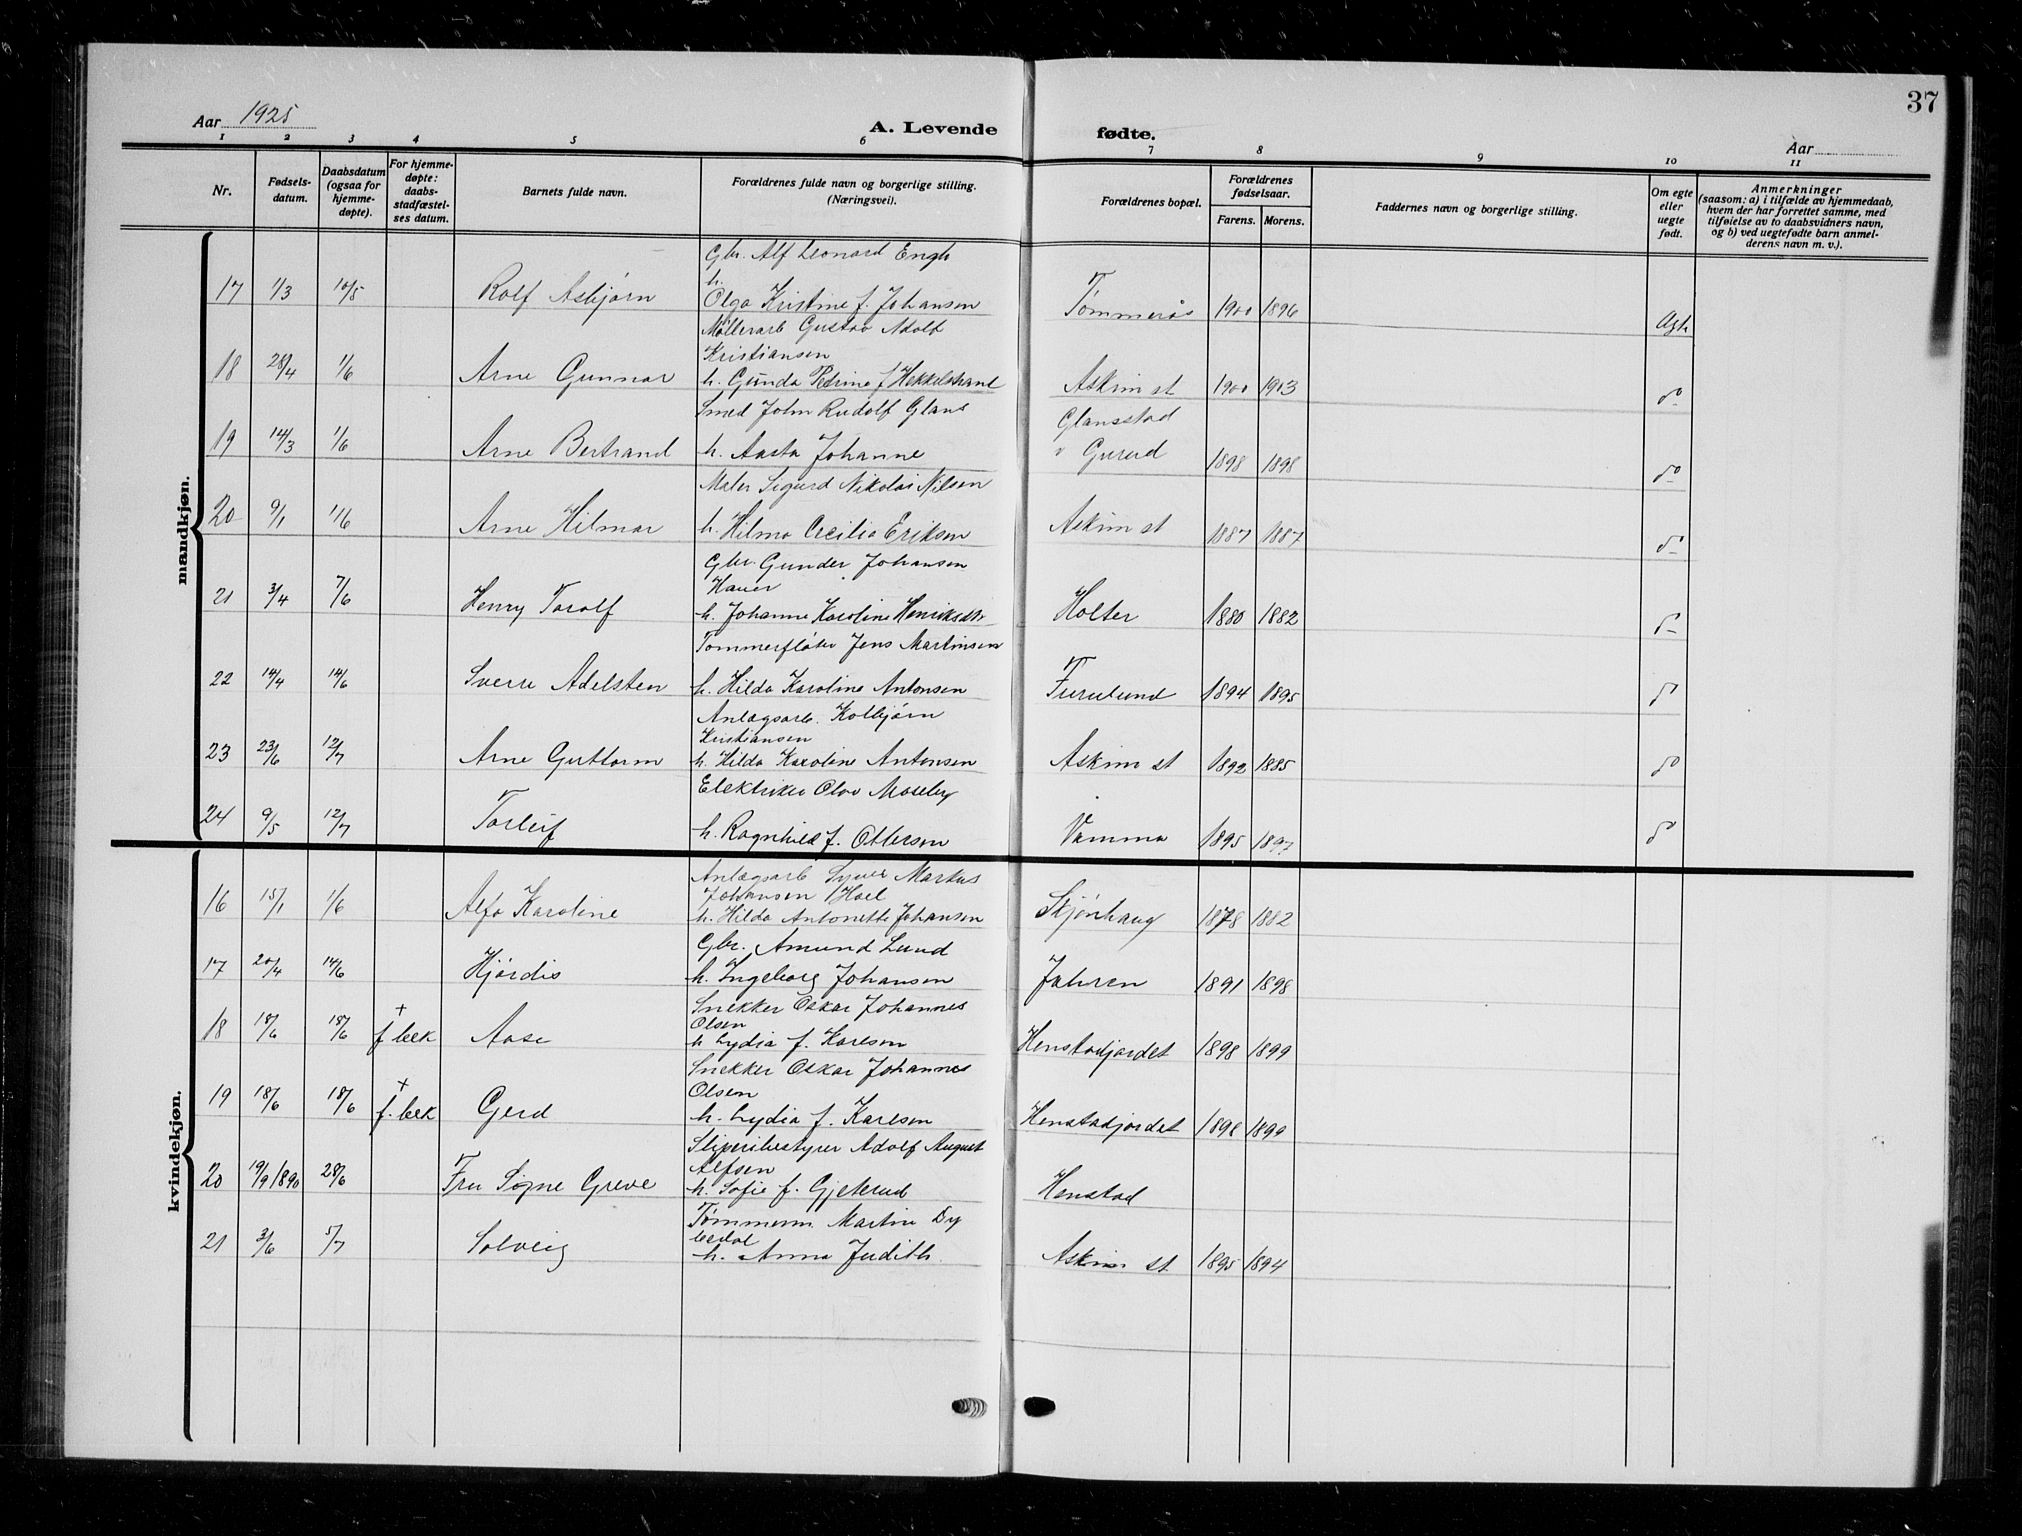 37
Aar 1925
A. Levende fødte.
Aar
1 2 3 4 5 6 7 8 9 10 11
Nr.
Fødsels-
datum.
Daabsdatum
(ogsaa for
hjemme-
døpte).
For hjemme-
døpte:
daabs-
stadfæstel-
ses datum.
Barnets fulde navn.
Forældrenes fulde navn og borgerlige stilling.
(Næringsvei).
Forældrenes bopæl.
Forældrenes
fødselsaar.
Farens. Morens.
Faddernes navn og borgerlige stilling.
Om egte
eller
uegte
født.
Anmerkninger
(saasom: a) i tilfælde av hjemmedaab,
hvem der har forrettet samme, med
tilføielse av to daabsvidners navn,
og b) ved uegtefødte barn anmel-
derens navn m. v.).
mandkjøn.
Gbr. Alf Leonard Engh
h.
17 1/3 10/5 Rolf Asbjørn Olga Kristine f. Johansen Tømmerås 1900 1896 Agh
Møllerarb Gustav Adolf
Kristiansen
18 28/4 1/6 Arne Gunnar h. Gunda Petrine f Hekkelstrand Askim st 1900 1903 do
Smed John Rudolf Glans Glansstad
19 14/3 1/6 Arne Bertrand h. Aasta Johanne v Gurud 1898 1898 do
Maler Sigurd Nikolai Nilsen
20 9/1 11/6 Arne Hilmar h. Hilma Cecilia Eriksen Askim st 1887 1887 do
Gbr. Gunder Johansen
Hauer
21 3/4 7/6 Henry Torolf h. Johanne Karoline Henriksdtr Holter 1880 1882 do
Tømmerfløter Jens Martinsen
22 14/4 14/6 Sverre Adelsten h. Hilda Karoline Antonsen Furulund 1894 1895 do
Anlægsarb. Kolbjørn
Kristiansen
23 23/6 12/7 Arne Guttorm h. Hilda Karoline Antonsen Askim st 1892 1885 do
Elektriker Olav Moseby
24 9/5 12/7 Torleif h. Ragnhild f. Ottersen Vamma 1895 1897 do
kvindekjøn.
Anlægsarb Syver Markus
Johansen Hoel
16 15/1 1/6 Alfa Karoline h. Hilda Antonette Johansen Skjønhaug 1878 1882
Gbr. Amund Lund
17 20/4 14/6 Hjørdis h. Ingeborg Johansen Jahren 1891 1898
Snekker Oskar Johannes
Olsen
18 18/6 18/6 + f bek Aase h Lydia f. Karlsen Henstadjordet 1898 1899
Snekker Oskar Johannes
Olsen
19 18/6 18/6 + f. bek Gerd h. Lydia f. Karlsen Henstadjordet 1898 1899
Sliperibestyrer Adolf August
Alfsen
20 19/9 1890 28/6 Fru Signe Greve h. Sofie f. Gjeterud Henstad
Tømmerm Martin Dy
bedal
21 3/6 5/7 Solveig h. Anna Judith. Askim st 1895 1894